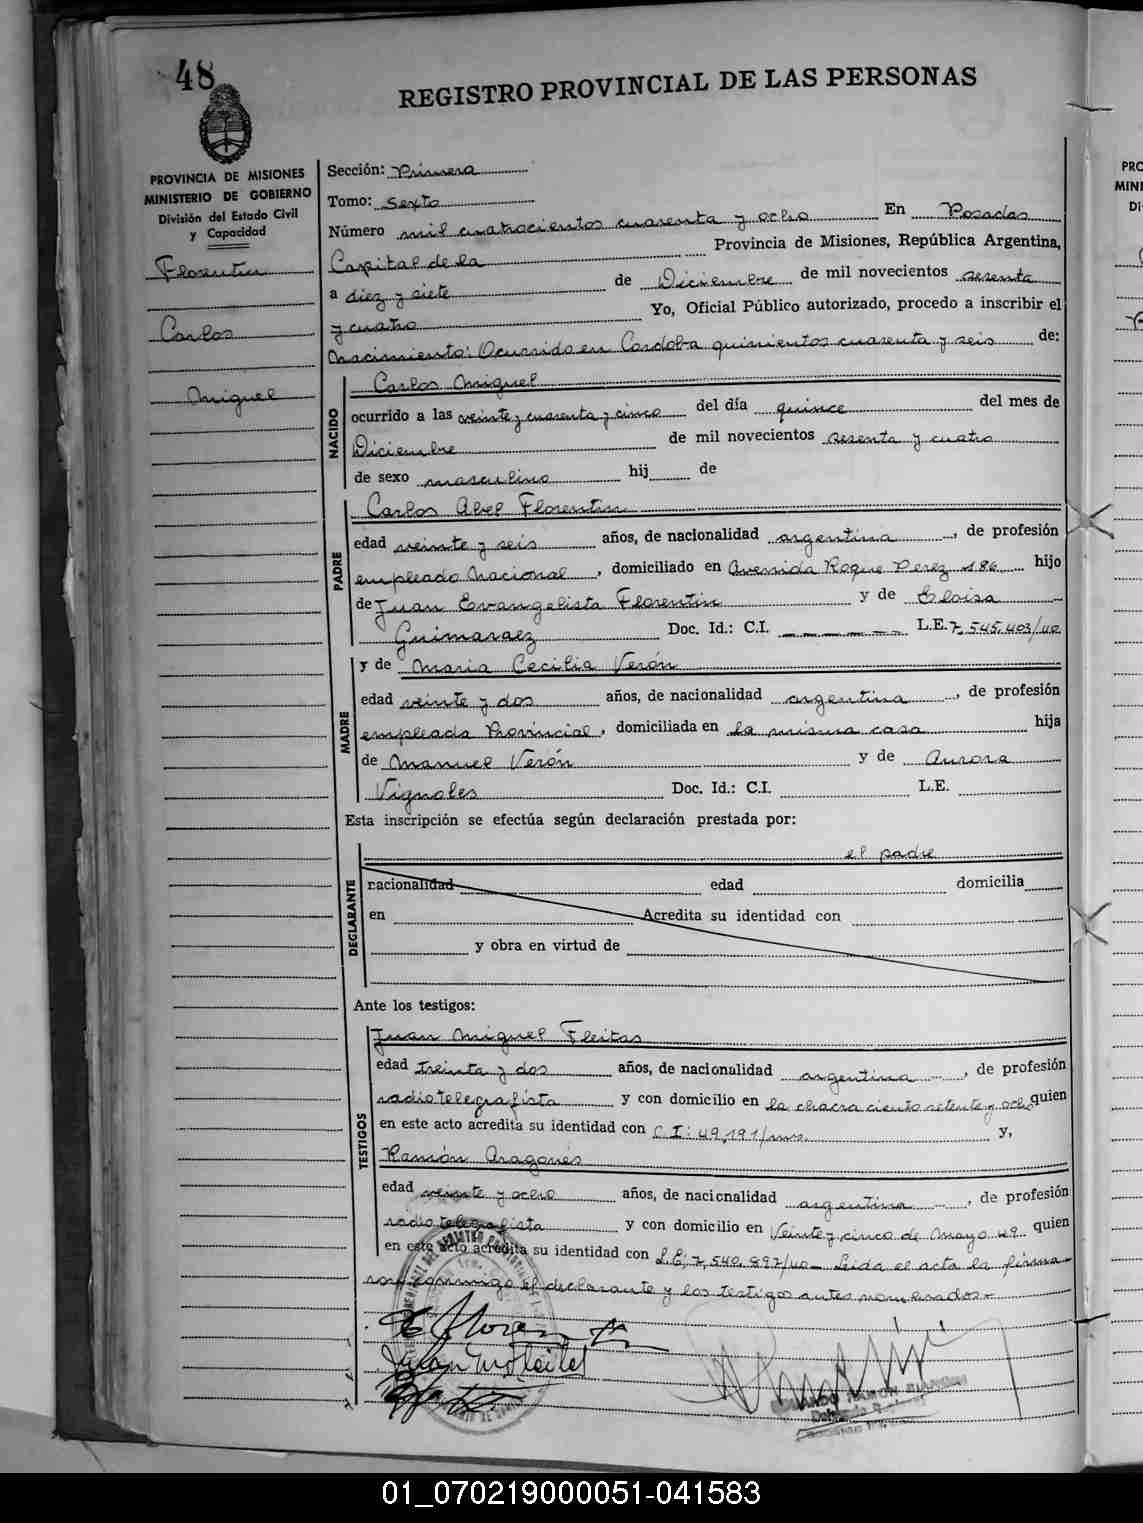 48
REGISTRO PROVINCIAL DE LAS PERSONAS
PROVINCIA DE MISIONES
MINISTERIO DE GOBIERNO
División del Estado Civil
y Capacidad
Florentin
Carlos
Miguel
Sección: Primera
Tomo: Sexto
Número mil cuatrocientos cuarenta y ocho En Posadas
Capital de la Provincia de Misiones, República Argentina,
a diez y siete de Diciembre de mil novecientos sesenta
y cuatro Yo, Oficial Público autorizado, procedo a inscribir el
Nacimiento: Ocurrido en Cordoba quinientos cuarenta y seis de:
NACIDO
Carlos Miguel
ocurrido a las veinte y cuarenta y cinco del día quince del mes de
Diciembre de mil novecientos sesenta y cuatro
de sexo masculino hij de
PADRE
Carlos Abel Florentin
edad veinte y seis años, de nacionalidad argentina, de profesión
empleado Nacional, domiciliado en Avenida Roque Perez 186 hijo
de Juan Evangelista Florentin y de Eloisa
Guimaraez Doc. Id.: C.I. L.E. 7,545,403/40
MADRE
y de Maria Cecilia Verón
edad veinte y dos años, de nacionalidad argentina, de profesión
empleada Provincial, domiciliada en la misma casa hija
de Manuel Verón y de Aurora
Vignoles Doc. Id.: C.I. L.E.
Esta inscripción se efectúa según declaración prestada por:
DECLARANTE
el padre
nacionalidad edad domicilia
en Acredita su identidad con
y obra en virtud de
Ante los testigos:
TESTIGOS
Juan Miguel Fleitas
edad treinta y dos años, de nacionalidad argentina, de profesión
radiotelegrafista y con domicilio en la chacra ciento setenta y ocho quien
en este acto acredita su identidad con C.I: 49,191/mns. y,
Ramón Aragonés
edad veinte y ocho años, de nacionalidad argentina, de profesión
radiotelegrafista y con domicilio en Veinte y cinco de Mayo 49 quien
en este acto acredita su identidad con L.E, 7,540,897/40 Leida el acta la firma-
ron conmigo el declarante y los testigos antes nombrados-
01_070219000051-041583